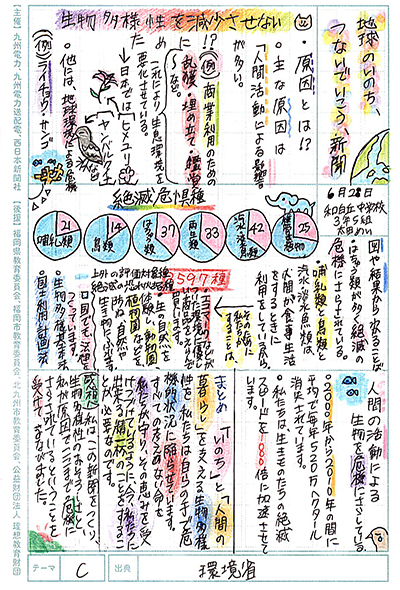 地球のいのち、
つないでいこう、新聞
6月28日
和白丘中学校
3年5組
生物多様性を減少させない
ために!?
・原因とは!?
・主な原因は
「人間活動による影響」
が多い。
例 商業利用のための
乱獲・埋め立て・
など。
これにより生息環境を
悪化させている。
→日本では「ヒメユリ」
「ヤンバルクイナ」
・他には、地球環境による危機
(例)ライチョウ・サンゴ
絶滅危惧種
哺乳類 21
鳥類 14
は虫類 37
両生類 33
汽水・淡水魚類 42
25
3597種
図や結果から分かることは
・は虫類が多く絶滅の
危機にさらされている。
・哺乳類と鳥類と
汽水・淡水魚類は、
人間が食事や生活
をするときに
利用をしているから。
私たちに
できる
ことは、
・生の自然を
体験し、動物園、
植物園などを
訪ね、自然や
・国でも法律を
つくっています。
・生物多様性基本法
・国土利用計画法
人間の活動による
生物を危機にさらしている。
・2000年から2010年の間に
平均で毎年520万ヘクタール
消失されています。
・私たちは、生きものたちの絶滅
スピードを100倍に加速させて
いる。
まとめ 「いのち」と「人間の
暮らし」を支える生物多様
性を私たちは自らの手で危
機的状況に陥らせています。
すべての支えあう命を
私たちが守り、その恵みを受
けつづけていくように、今、私たちに
出来る精一杯のことをすること
が必要なのです。
感想 私はこの新聞をつくり、
生物多様性のおよそのことと
私が原因でここまで危機に
さらされているということを
考えさせられました。
テーマ C 出典 環境省
【主催】九州電力、九州電力送配電、西日本新聞社
【後援】福岡県教育委員会、福岡市教育委員会、北九州市教育委員会、公益財団法人 理想教育財団